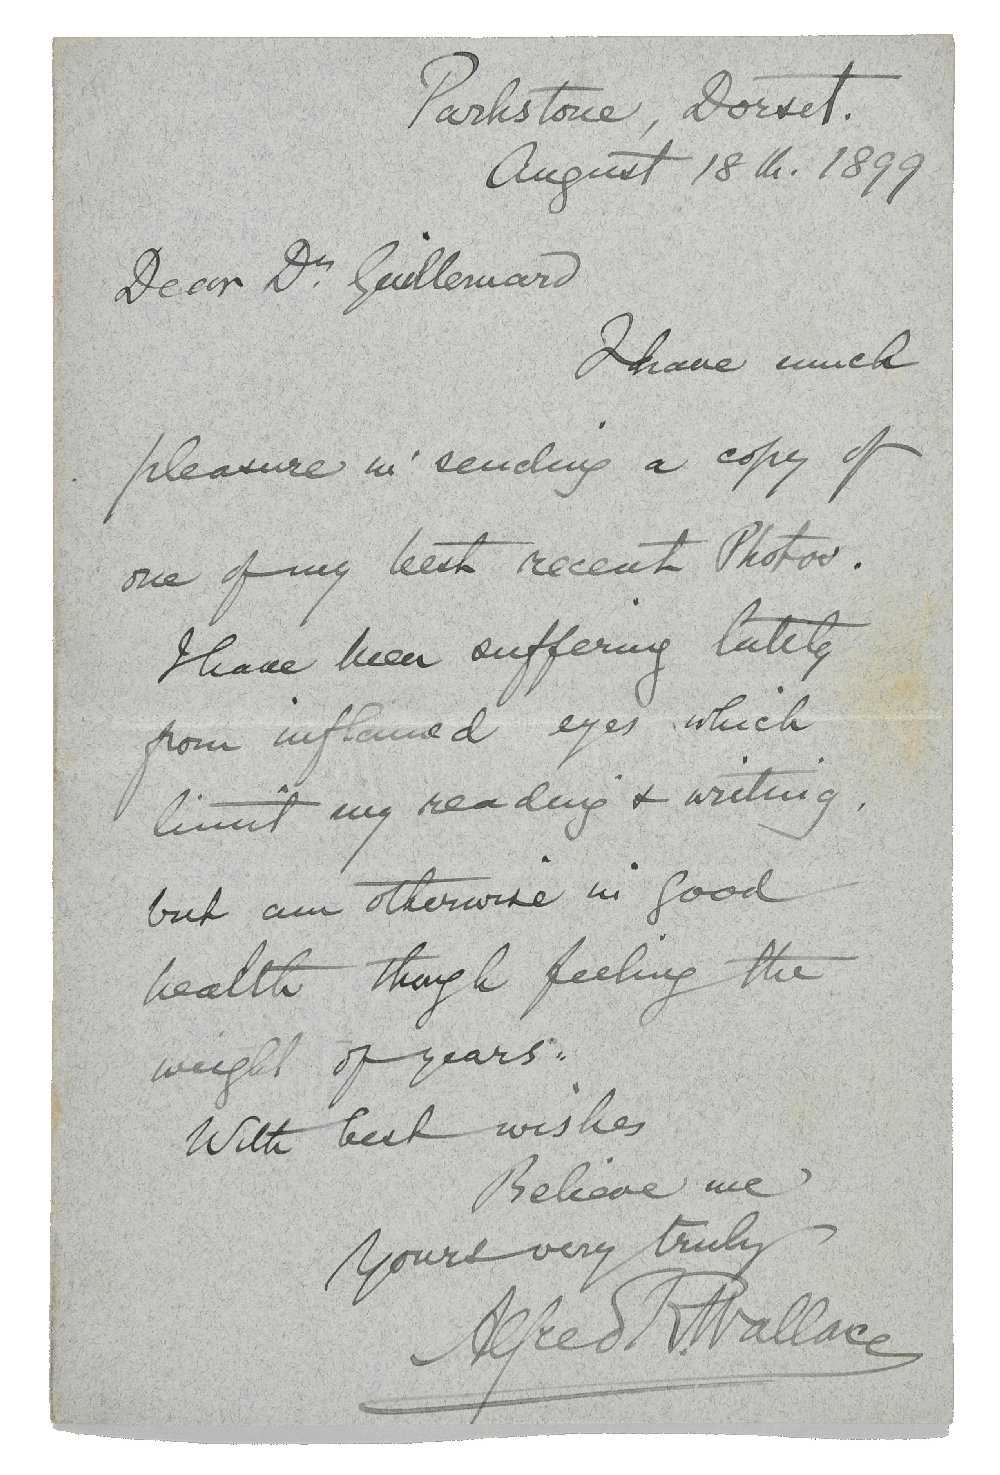 Parkstone, Dorset.
August 18th. 1899
Dear Dr. Guillemard
I have much
pleasure in sending a copy of
one of my best recent Photos.
I have been suffering lately
from inflamed eyes which
limit my reading & writing,
but am otherwise in good
health though feeling the
weight of years.
With best wishes
Believe me
Yours very truly
Alfred R. Wallace